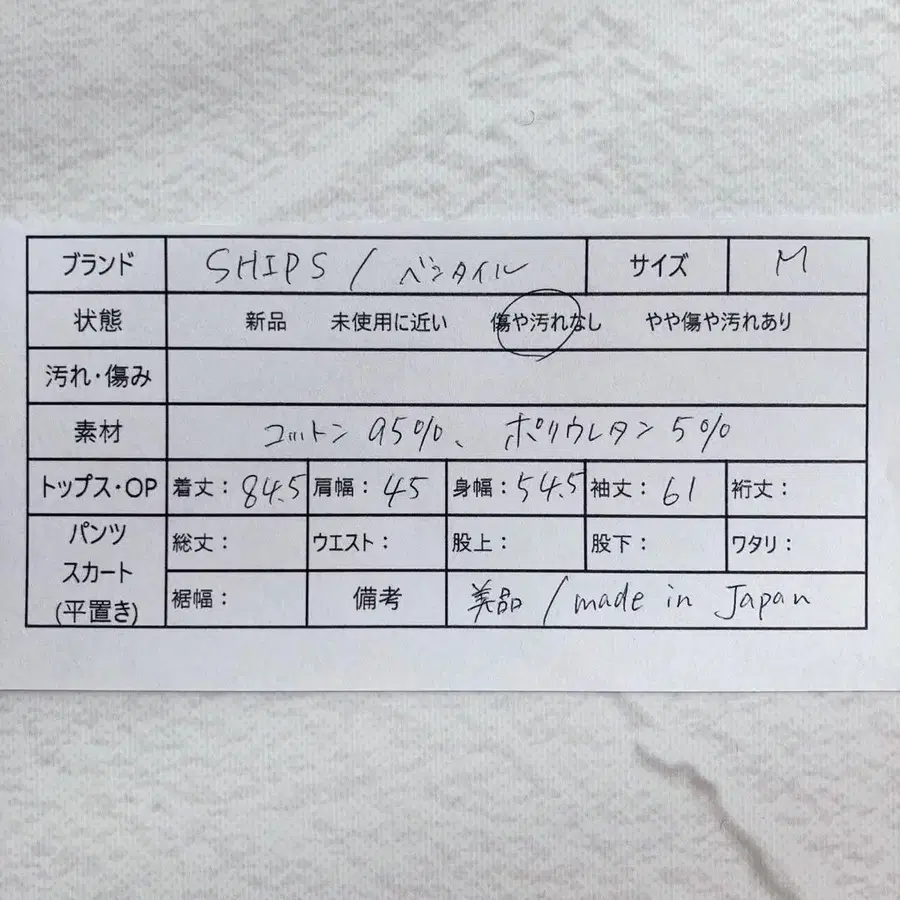 ブランド SHIPS / ベンタイル サイズ M
状態 新品 未使用に近い 傷や汚れなし やや傷や汚れあり
汚れ・傷み
素材 コットン 95%、ポリウレタン 5%
トップス・OP 着丈：84.5 肩幅：45 身幅：54.5 袖丈：61 裄丈：
パンツ スカート (平置き) 総丈： ウエスト： 股上： 股下： ワタリ：
裾幅： 備考 美品 / made in Japan